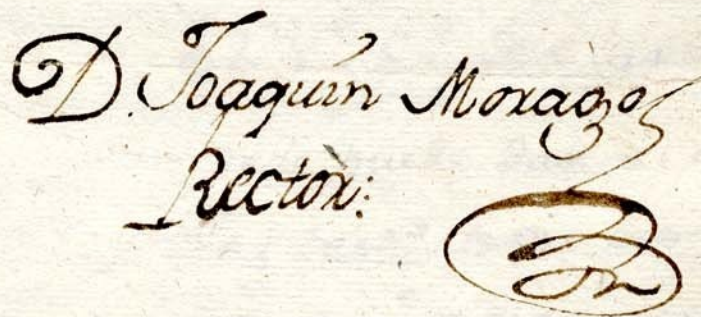 D. Joaquin Moragos
Rector: